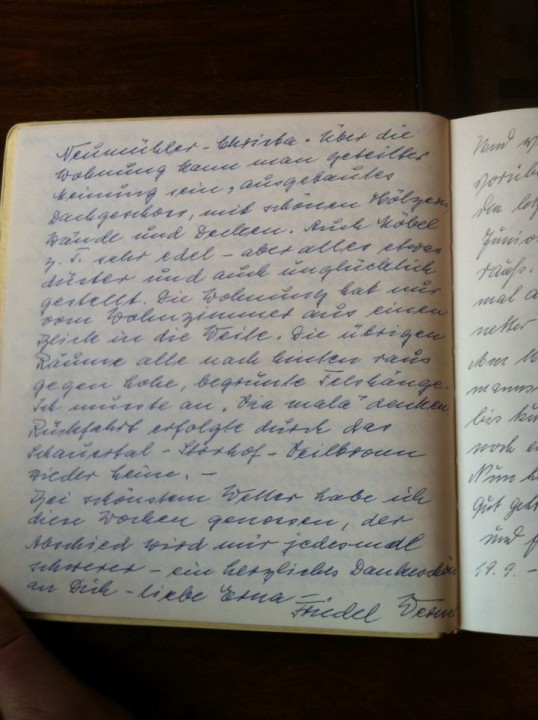 Neumühler - Christa. Über die
Wohnung kann man geteilter
Meinung sein, ausgebautes
Dachgeschoss, mit schönen Hölzern,
Wände und Decken. Auch Möbel
z. T. sehr edel - aber alles etwas
düster und auch unglücklich
gestellt. Die Wohnung hat nur
vom Wohnzimmer aus einen
Blick in die Weite. Die übrigen
Räume alle nach hinten raus
gegen hohe, begrünte Felshänge.
Ich musste an "Via mala" denken
Rückfahrt erfolgte durch das
- Störhof - Heilbronn
wieder heim. -
Bei schönstem Wetter habe ich
diese Wochen genossen, der
Abschied wird mir jedesmal
schwerer - ein herzliches Dankeschön
an Dich - liebe Erna -
Friedel
Und
vorüb
den let
Junio
rauf.
mal a
netter
Am
manns
bis
noch e
Nun h
Gut geh
und f
19.9. -